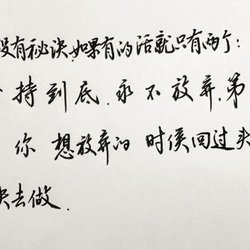 没有秘诀,如果有的话就只有两个:
持到底.永不放弃,第
你 想放弃的 时候回过头
去做.